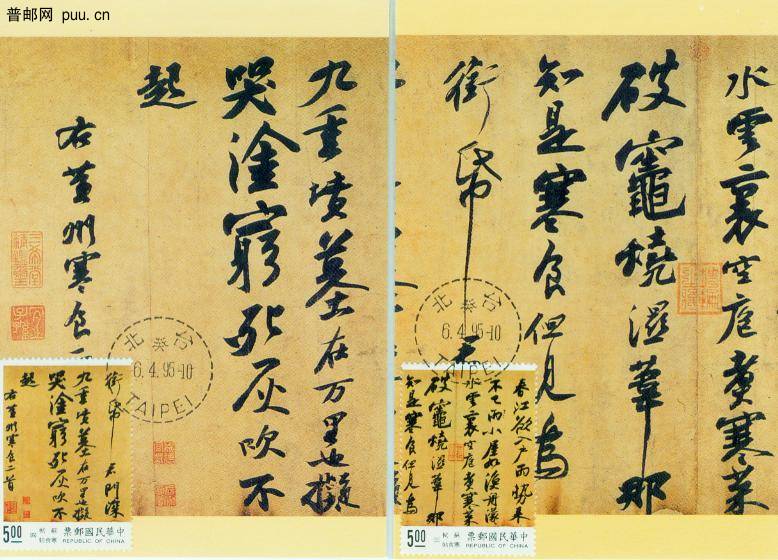 普邮网 puu.cn
水雲裏空庖煑寒菜
破竈燒濕葦那
知是寒食但見烏
銜帋君
台北
癸
6.4.95-10
TAIPEI
春江欲入户雨勢來
不已雨小屋如漁舟濛
水雲裏空庖煑寒菜
破竈燒濕葦那
知是寒食但見烏
中華民國郵票
REPUBLIC OF CHINA
5.00
九重墳墓在万里也擬
哭塗窮死灰吹不
起
右黃州寒食二
台北
癸
6.4.95-10
TAIPEI
銜帋君門深
九重墳墓在万里也擬
哭塗窮死灰吹不
起
右黃州寒食二首
中華民國郵票
REPUBLIC OF CHINA
5.00